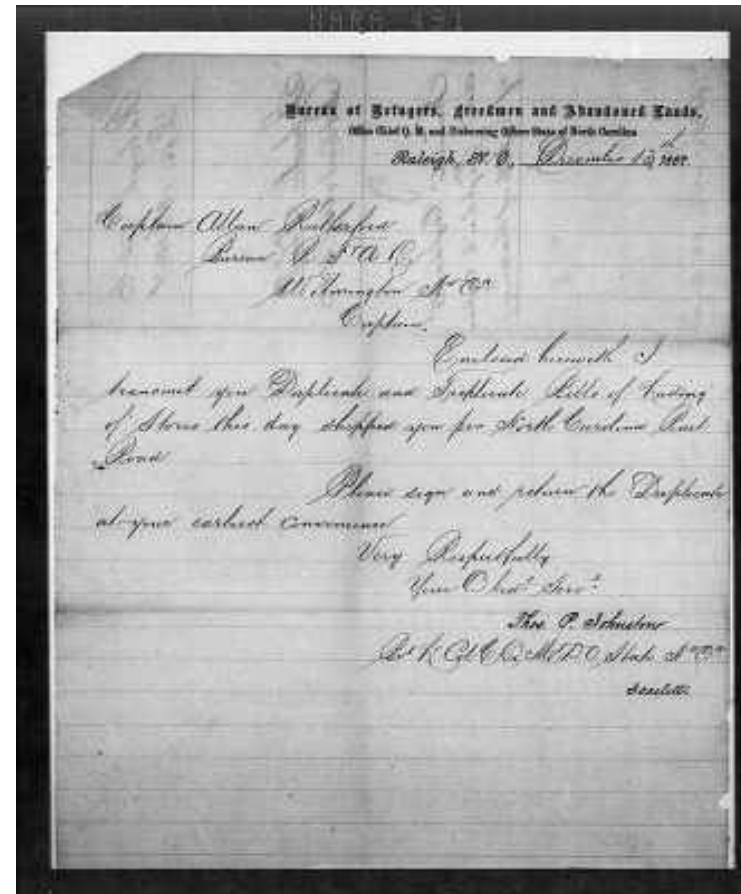 NARA 491
Bureau of Refugees, Freedmen and Abandoned Lands,
Office Chief Q. M. and Disbursing Officer State of North Carolina
Raleigh, N. C., December 13th 1867.
Captain Allan Rutherford
Bureau R. F & A L
Wilmington N Ca
Captain,
Enclosed herewith I
transmit you Duplicate and Triplicate Bills of Lading
of Stores this day shipped you per North Carolina Rail
Road
Please sign and return the Duplicate
at your earliest convenience
Very Respectfully
Your Obedt Servt
Thos. P. Johnston
Col C. Q. M. & D. O. State N Ca